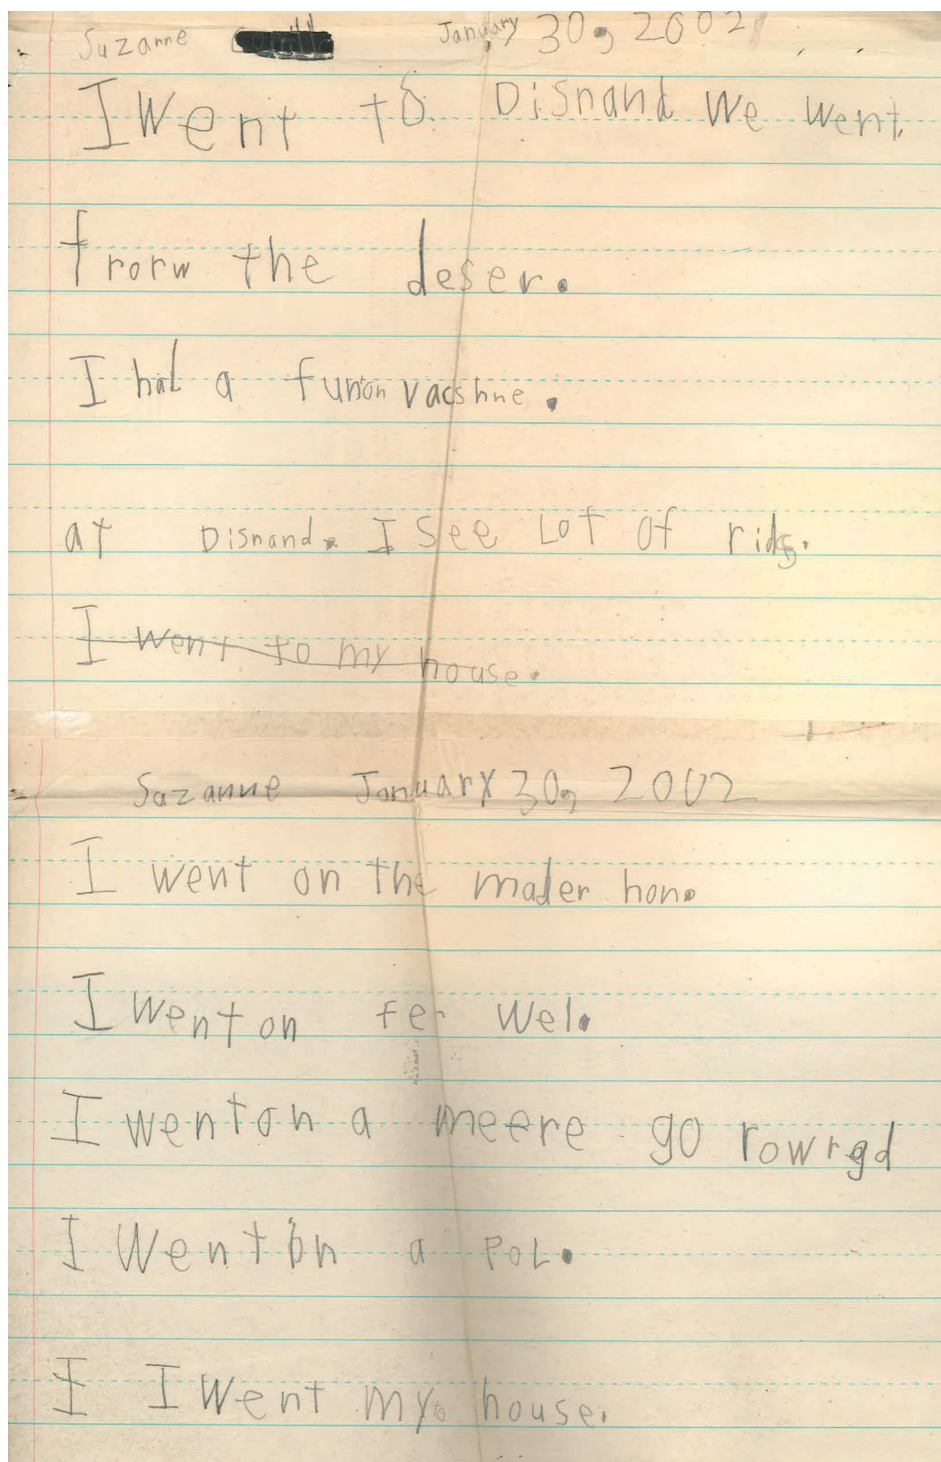 Suzanne January 30, 2002
I went to Disnand we went
frorw the deser.
I had a funon vacshne.
at Disnand. I see Lot of rids.
I went to my house.
Suzanne January 30, 2002
I went on the mader hon.
I went on fer wel.
I went on a meere go rowrgd
I went on a Pol.
I I went my to house.